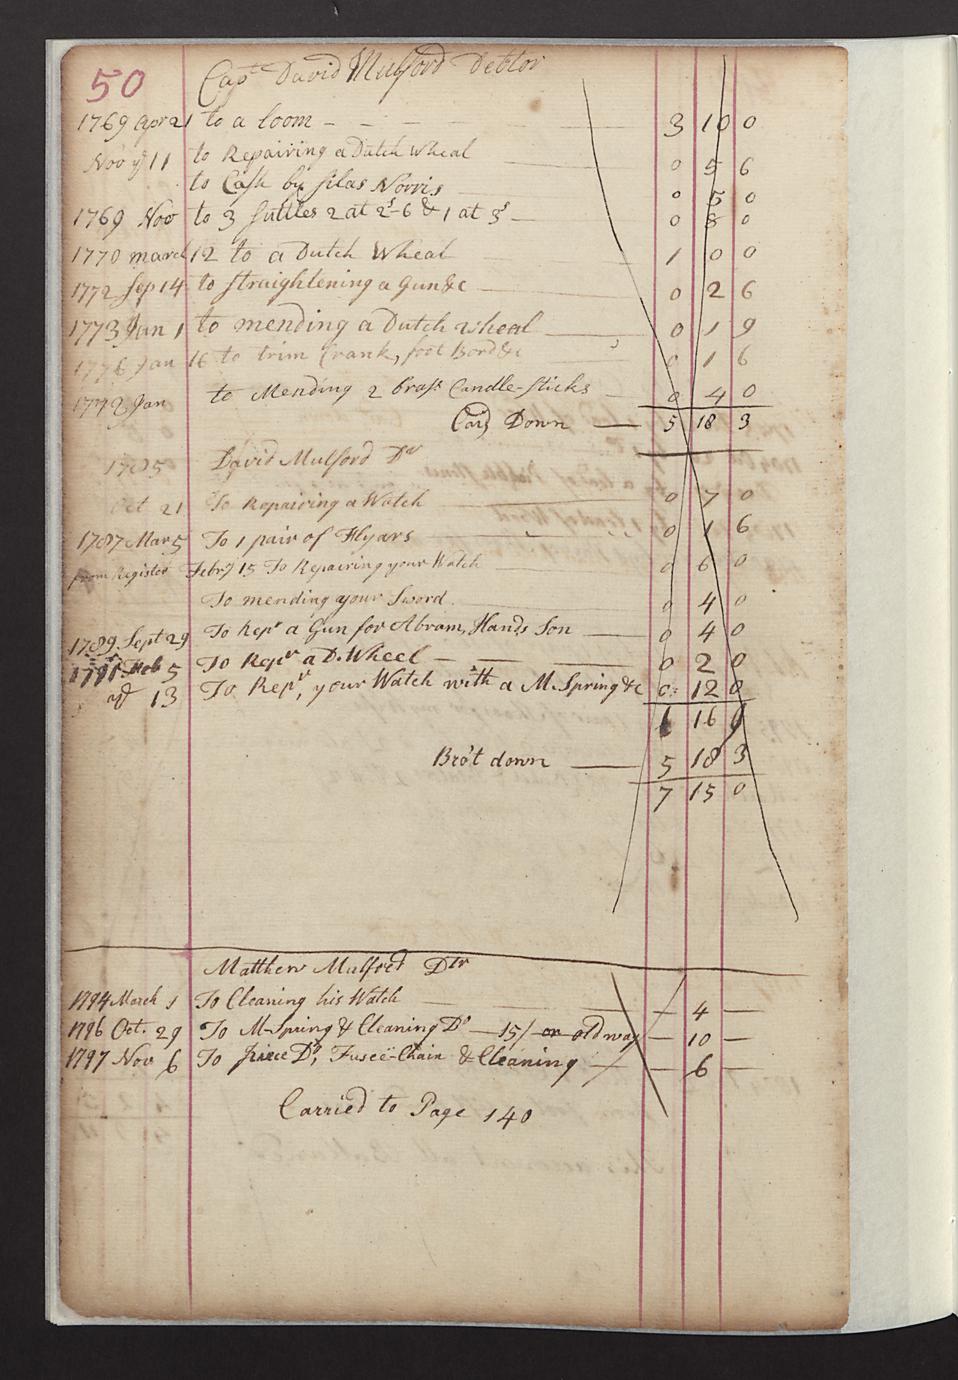 50 Capt David Mulford Debtor
1769 Apr 21 to a loom - - - - 3 10 0
Nov ye 11 to Repairing a Dutch wheal 0 5 6
to Cash by Silas Norris 0 5 0
1769 Nov to 3 Suttles 2 at 2s-6 & 1 at 3s 0 8 0
1770 march 12 to a Dutch Wheal 1 0 0
1772 Sep 14 to straightening a Gun &c 0 2 6
1773 Jan 1 to mending a Dutch wheal 0 1 9
1776 Jan 16 to trim Crank, foot Bord &c 0 1 6
Jan to Mending 2 brass Candle-sticks 0 4 0
Card Down 5 18 3
1785 David Mulford Dr
Oct 21 To Repairing a Watch 0 7 0
1787 Mar 5 To 1 pair of Flyars 0 1 6
from Register Febry 15 To Repairing your Watch 0 6 0
To mending your Sword 0 4 0
1789 Sept 29 To Repr a Gun for Abram, Hands Son 0 4 0
Feb 5 To Repr a D. Wheel 0 2 0
13 To Repr, your Watch with a M. Spring &c 0 12 0
1 16
Bro't down 5 18 3
7 15 0
Matthew Mulford Dtr
1794 March 1 To Cleaning his Watch — 4 —
1796 Oct. 29 To M-Spring & Cleaning Do — 15/ or old way — 10 —
1797 Nov 6 To piece Do, Fuseë-Chain & Cleaning — 6 —
Carried to Page 140